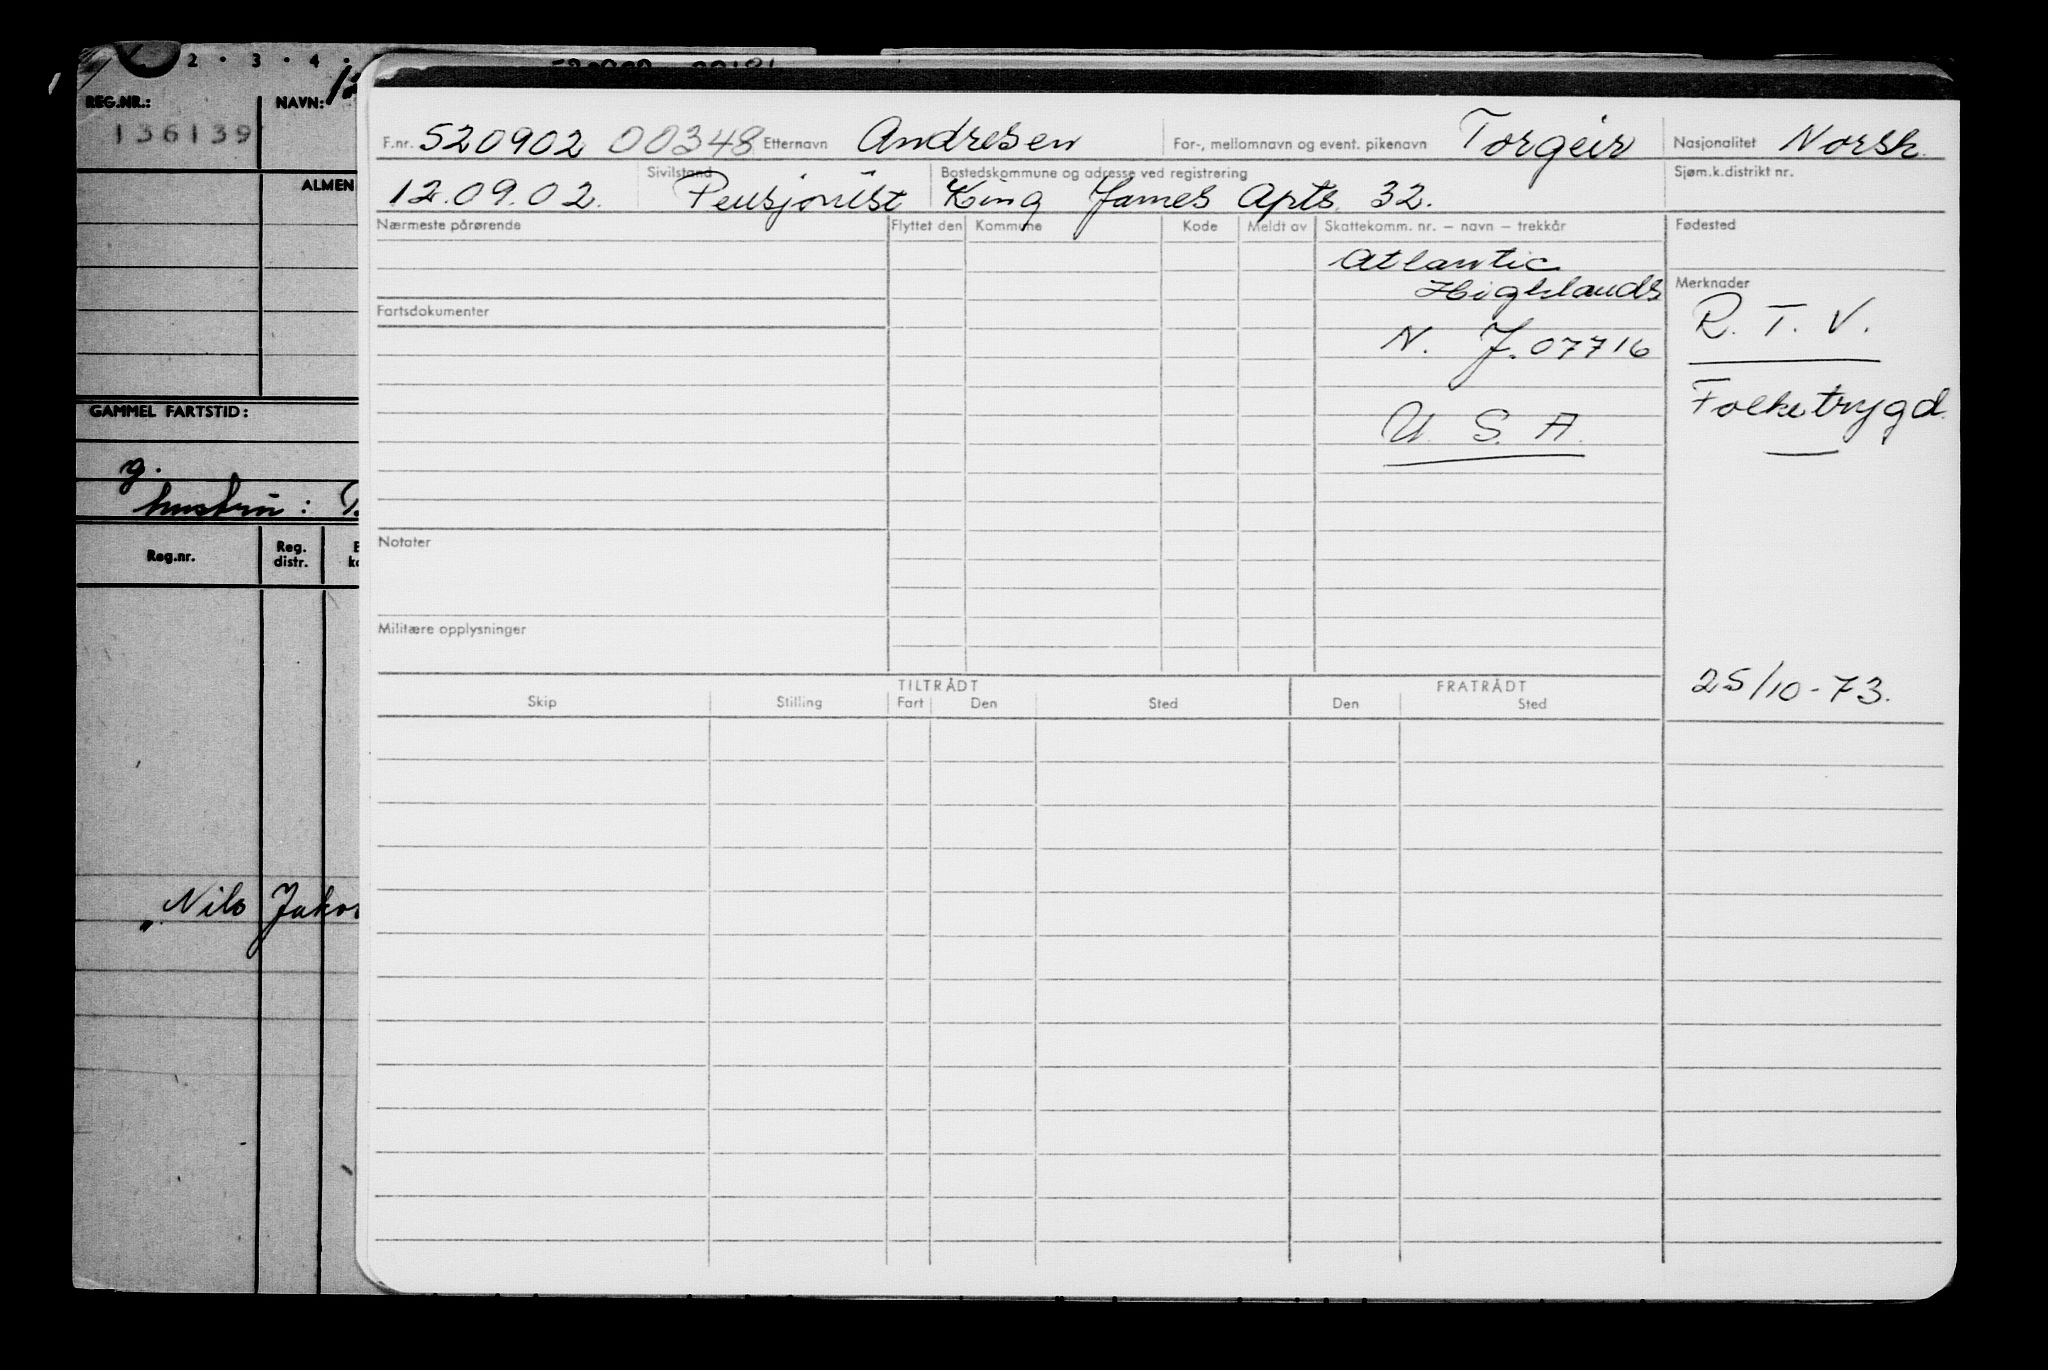 2 · 3 · 4 ·
REG.NR.:
NAVN:
136139
ALMEN
GAMMEL FARTSTID:
g.
hustru :
Reg.nr. Reg. distr.
Nils
F.nr. 520902 00348 Etternavn Andresen For-, mellomnavn og event. pikenavn Torgeir Nasjonalitet Norsk.
12.09.02. Sivilstand Pensjonist Bostedskommune og adresse ved registrering King James Apts. 32. Sjøm.k.distrikt nr.
Nærmeste pårørende Flyttet den Kommune Kode Meldt av Skattekomm. nr. – navn – trekkår Fødested
Atlantic
Highlands Merknader
Fartsdokumenter R. T. V.
N. J. 07716
Folketrygd.
U. S. A.
Notater
Militære opplysninger
25/10-73.
TILTRÅDT FRATRÅDT
Skip Stilling Fart Den Sted Den Sted